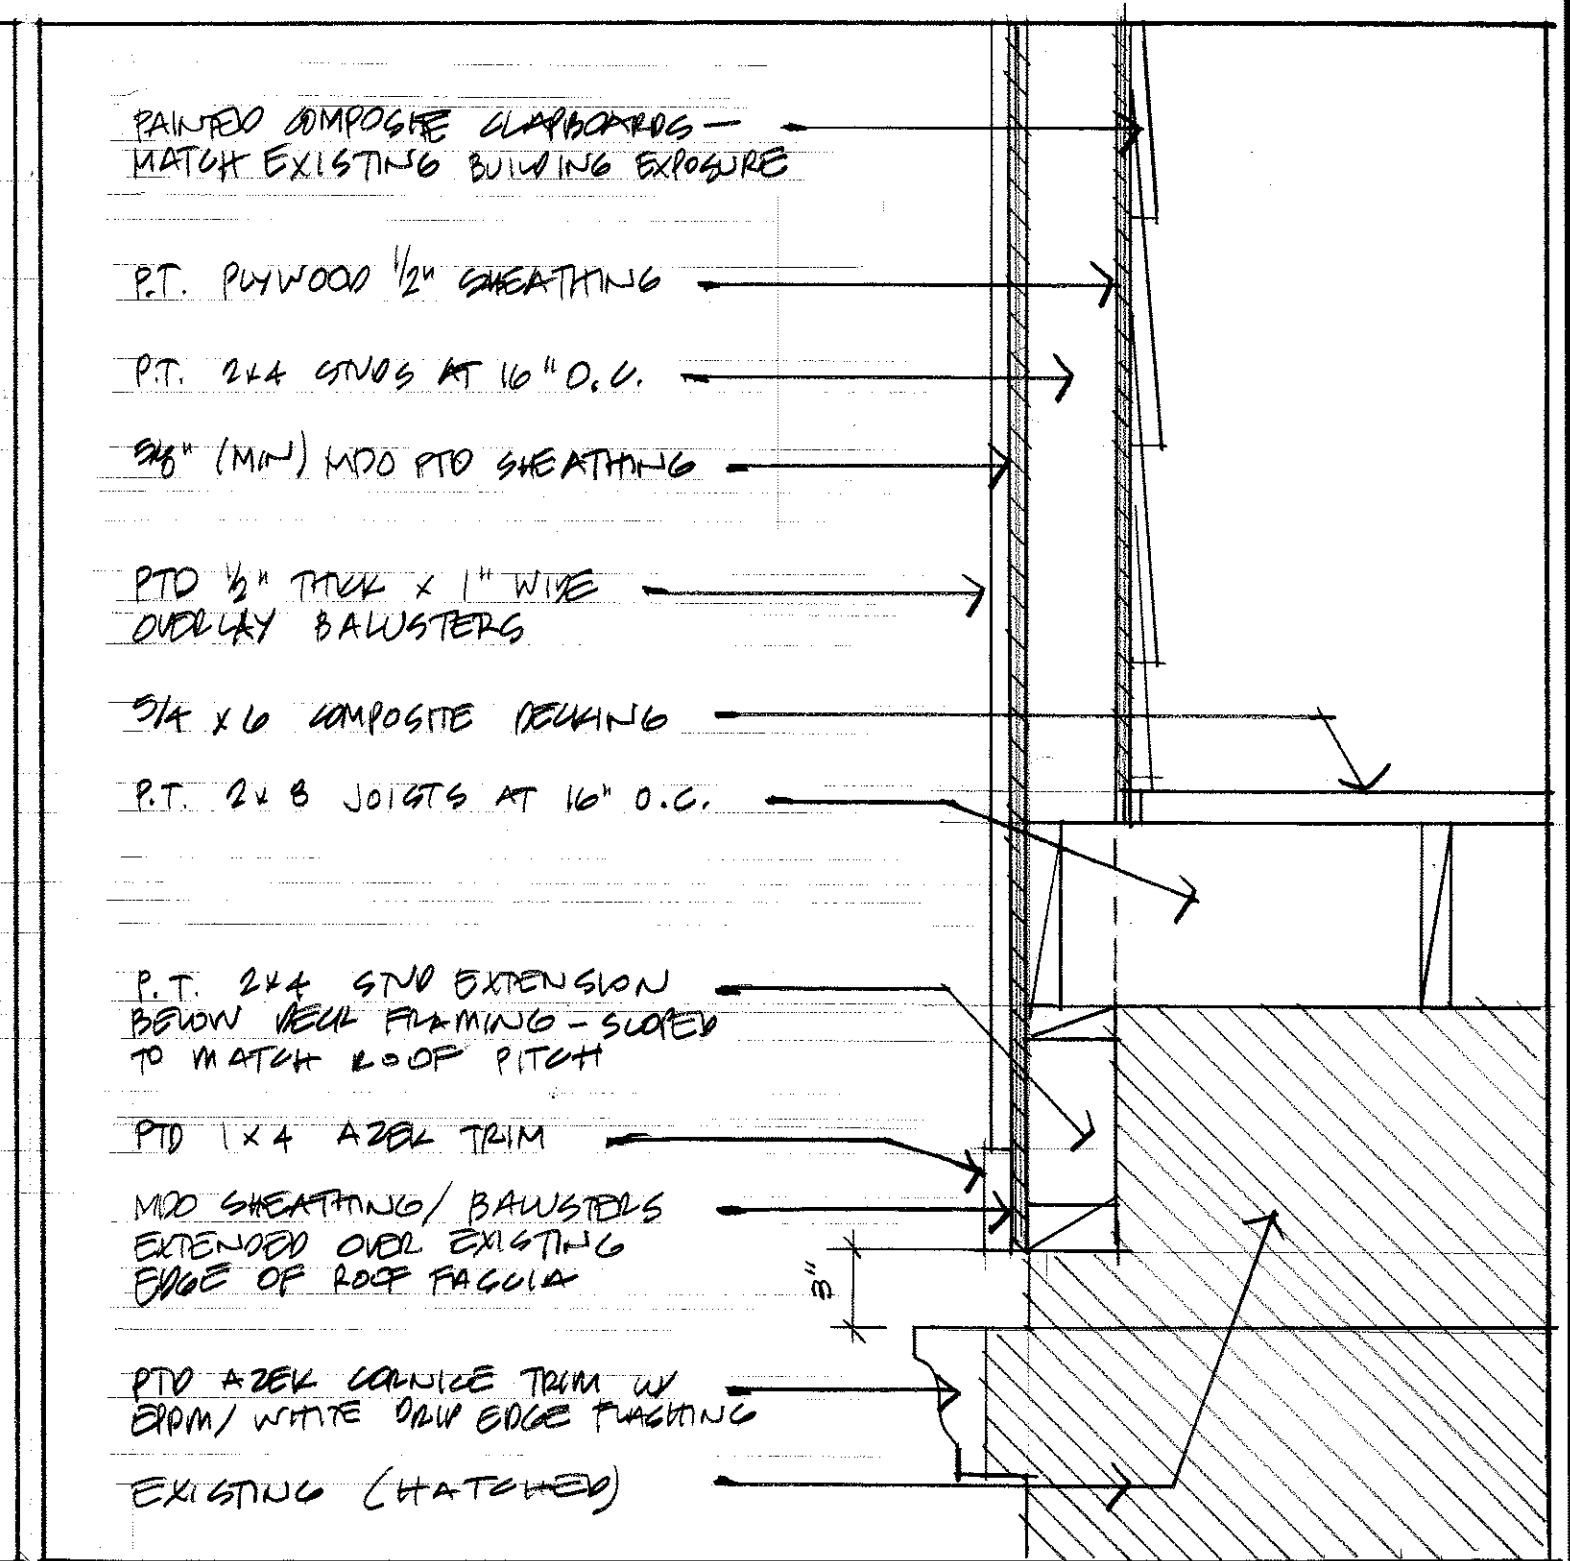 PAINTED COMPOSITE CLAPBOARDS —
MATCH EXISTING BUILDING EXPOSURE
P.T. PLYWOOD 1/2" SHEATHING
P.T. 2x4 STUDS AT 16" O.C.
5/8" (MIN) MDO PTD SHEATHING
PTD 1/2" THICK x 1" WIDE
OVERLAY BALUSTERS
5/4 x 6 COMPOSITE DECKING
P.T. 2x8 JOISTS AT 16" O.C.
P.T. 2x4 STUD EXTENSION
BELOW DECK FRAMING - SLOPED
TO MATCH ROOF PITCH
PTD 1x4 AZEK TRIM
MDO SHEATHING/ BALUSTERS
EXTENDED OVER EXISTING
EDGE OF ROOF FASCIA
3"
PTD AZEK CORNICE TRIM W/
EPDM/ WHITE DRIP EDGE FLASHING
EXISTING (HATCHED)